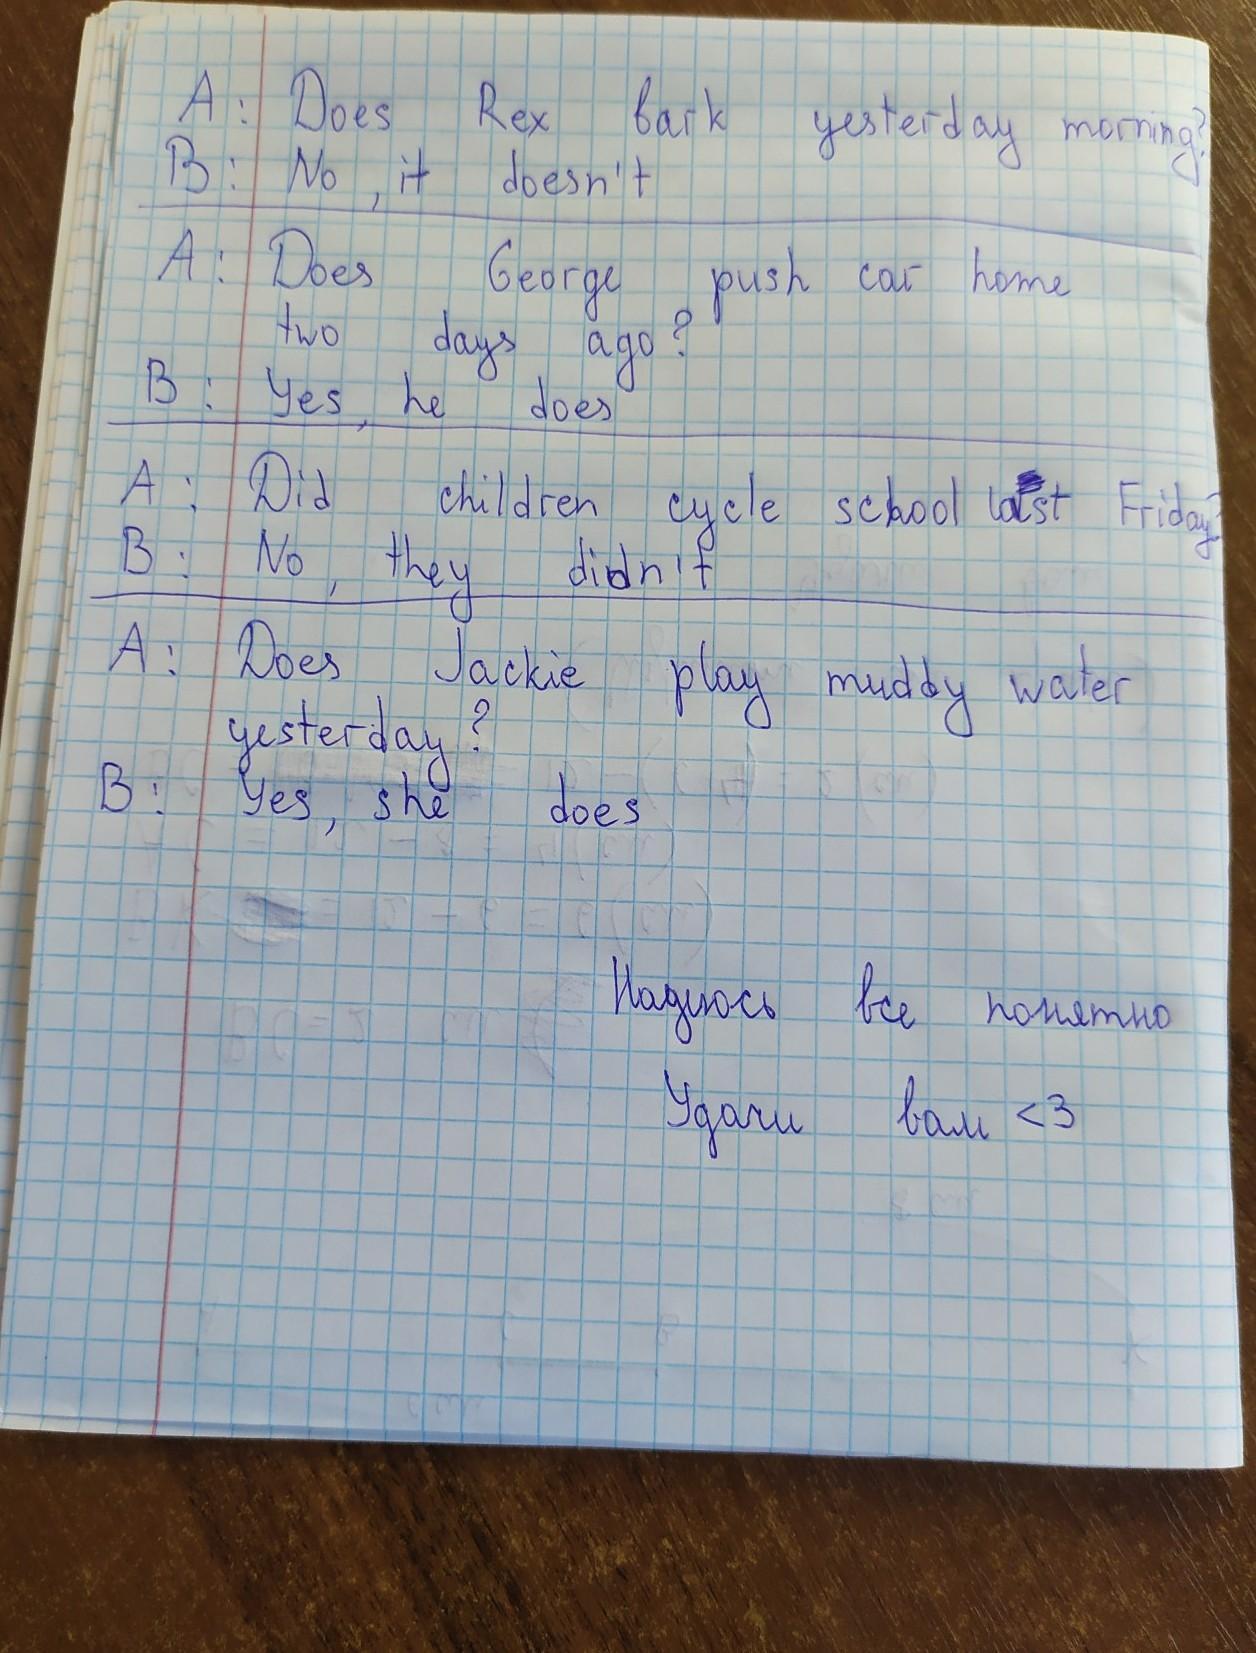 A: Does Rex bark yesterday morning?
B: No, it doesn't
A: Does George push car home
two days ago?
B: Yes, he does
A: Did children cycle school last Friday?
B: No, they didn't
A: Does Jackie play muddy water
yesterday?
B: Yes, she does
Надеюсь все понятно
Удачи вам <3